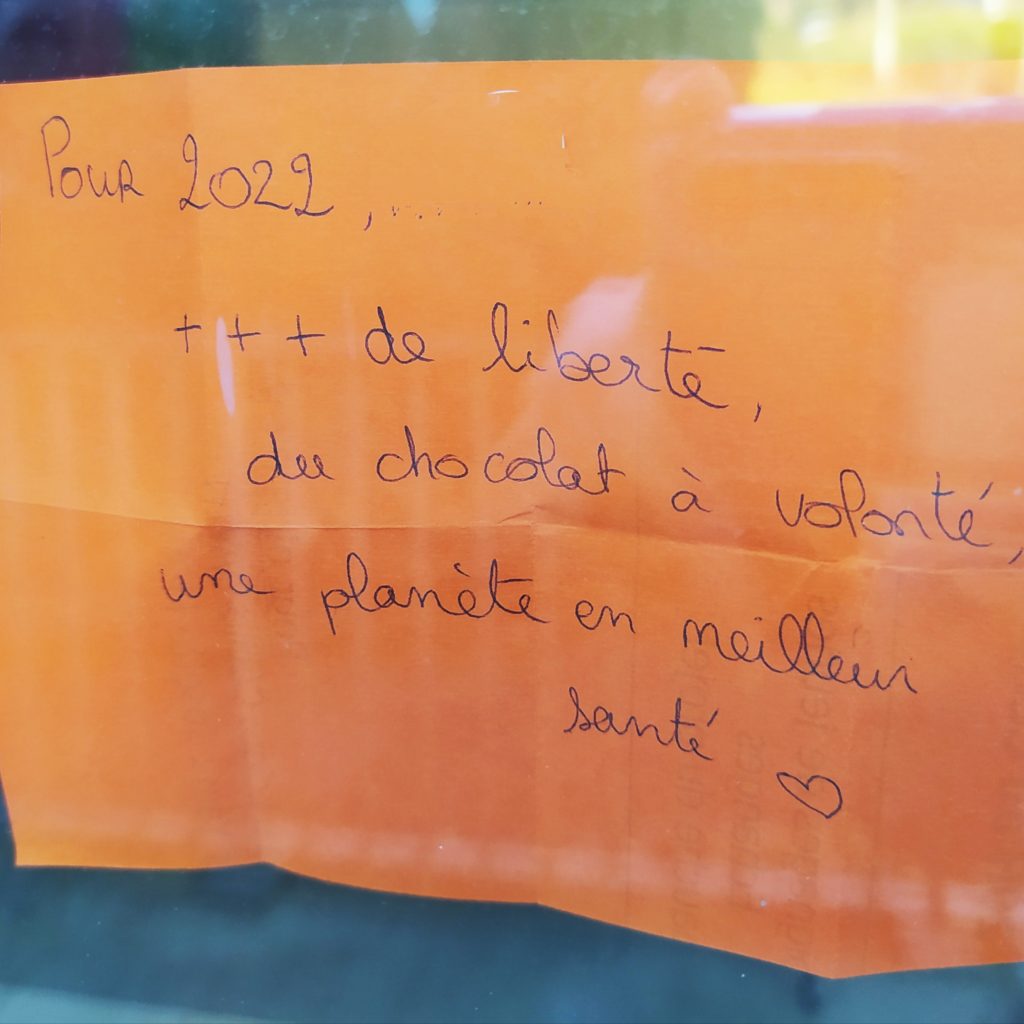 Pour 2022, .... ...
+ + + de liberté,
du chocolat à volonté,
une planète en meilleur
santé ♡